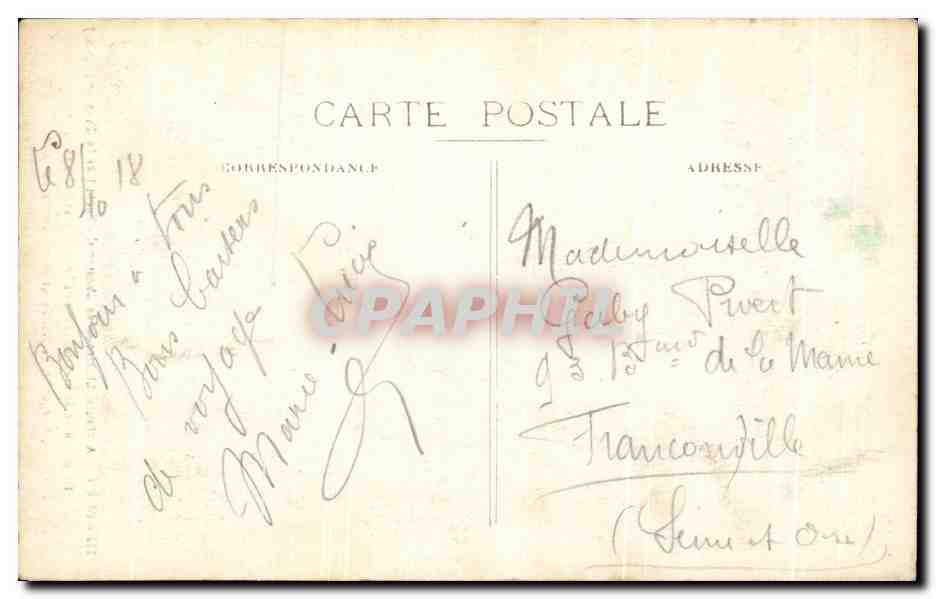 CARTE POSTALE
CORRESPONDANCE
ADRESSE
8/10 18
Bonjour à tous
Bons baisers
de voyage
Marie
Mademoiselle
Gaby Pivert
93 Btard de La Mairie
Franconville
(Seine et Oise)
CPAPHIL